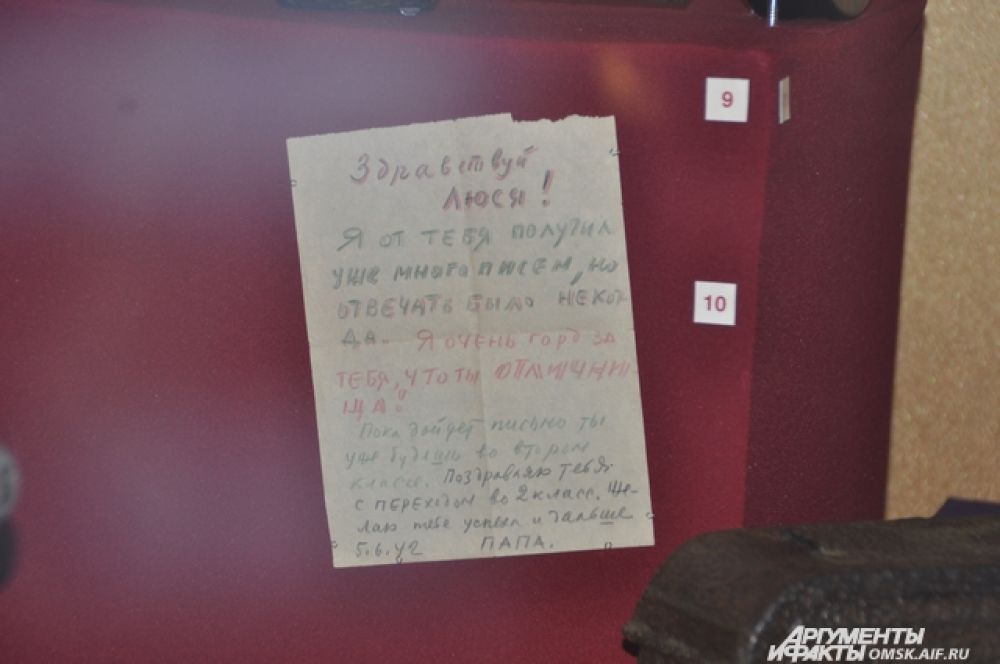 Здравствуй
Люся!
Я от тебя получил
уже много писем, но
отвечать было неког-
да. Я очень горд за
тебя, что ты отлични-
ца!
Пока дойдет письмо ты
уже будешь во втором
классе. Поздравляю тебя
с переходом во 2 класс. Же-
лаю тебе успеха и дальше
5.6.42 ПАПА.
9
10
АРГУМЕНТЫ
И ФАКТЫ OMSK.AIF.RU